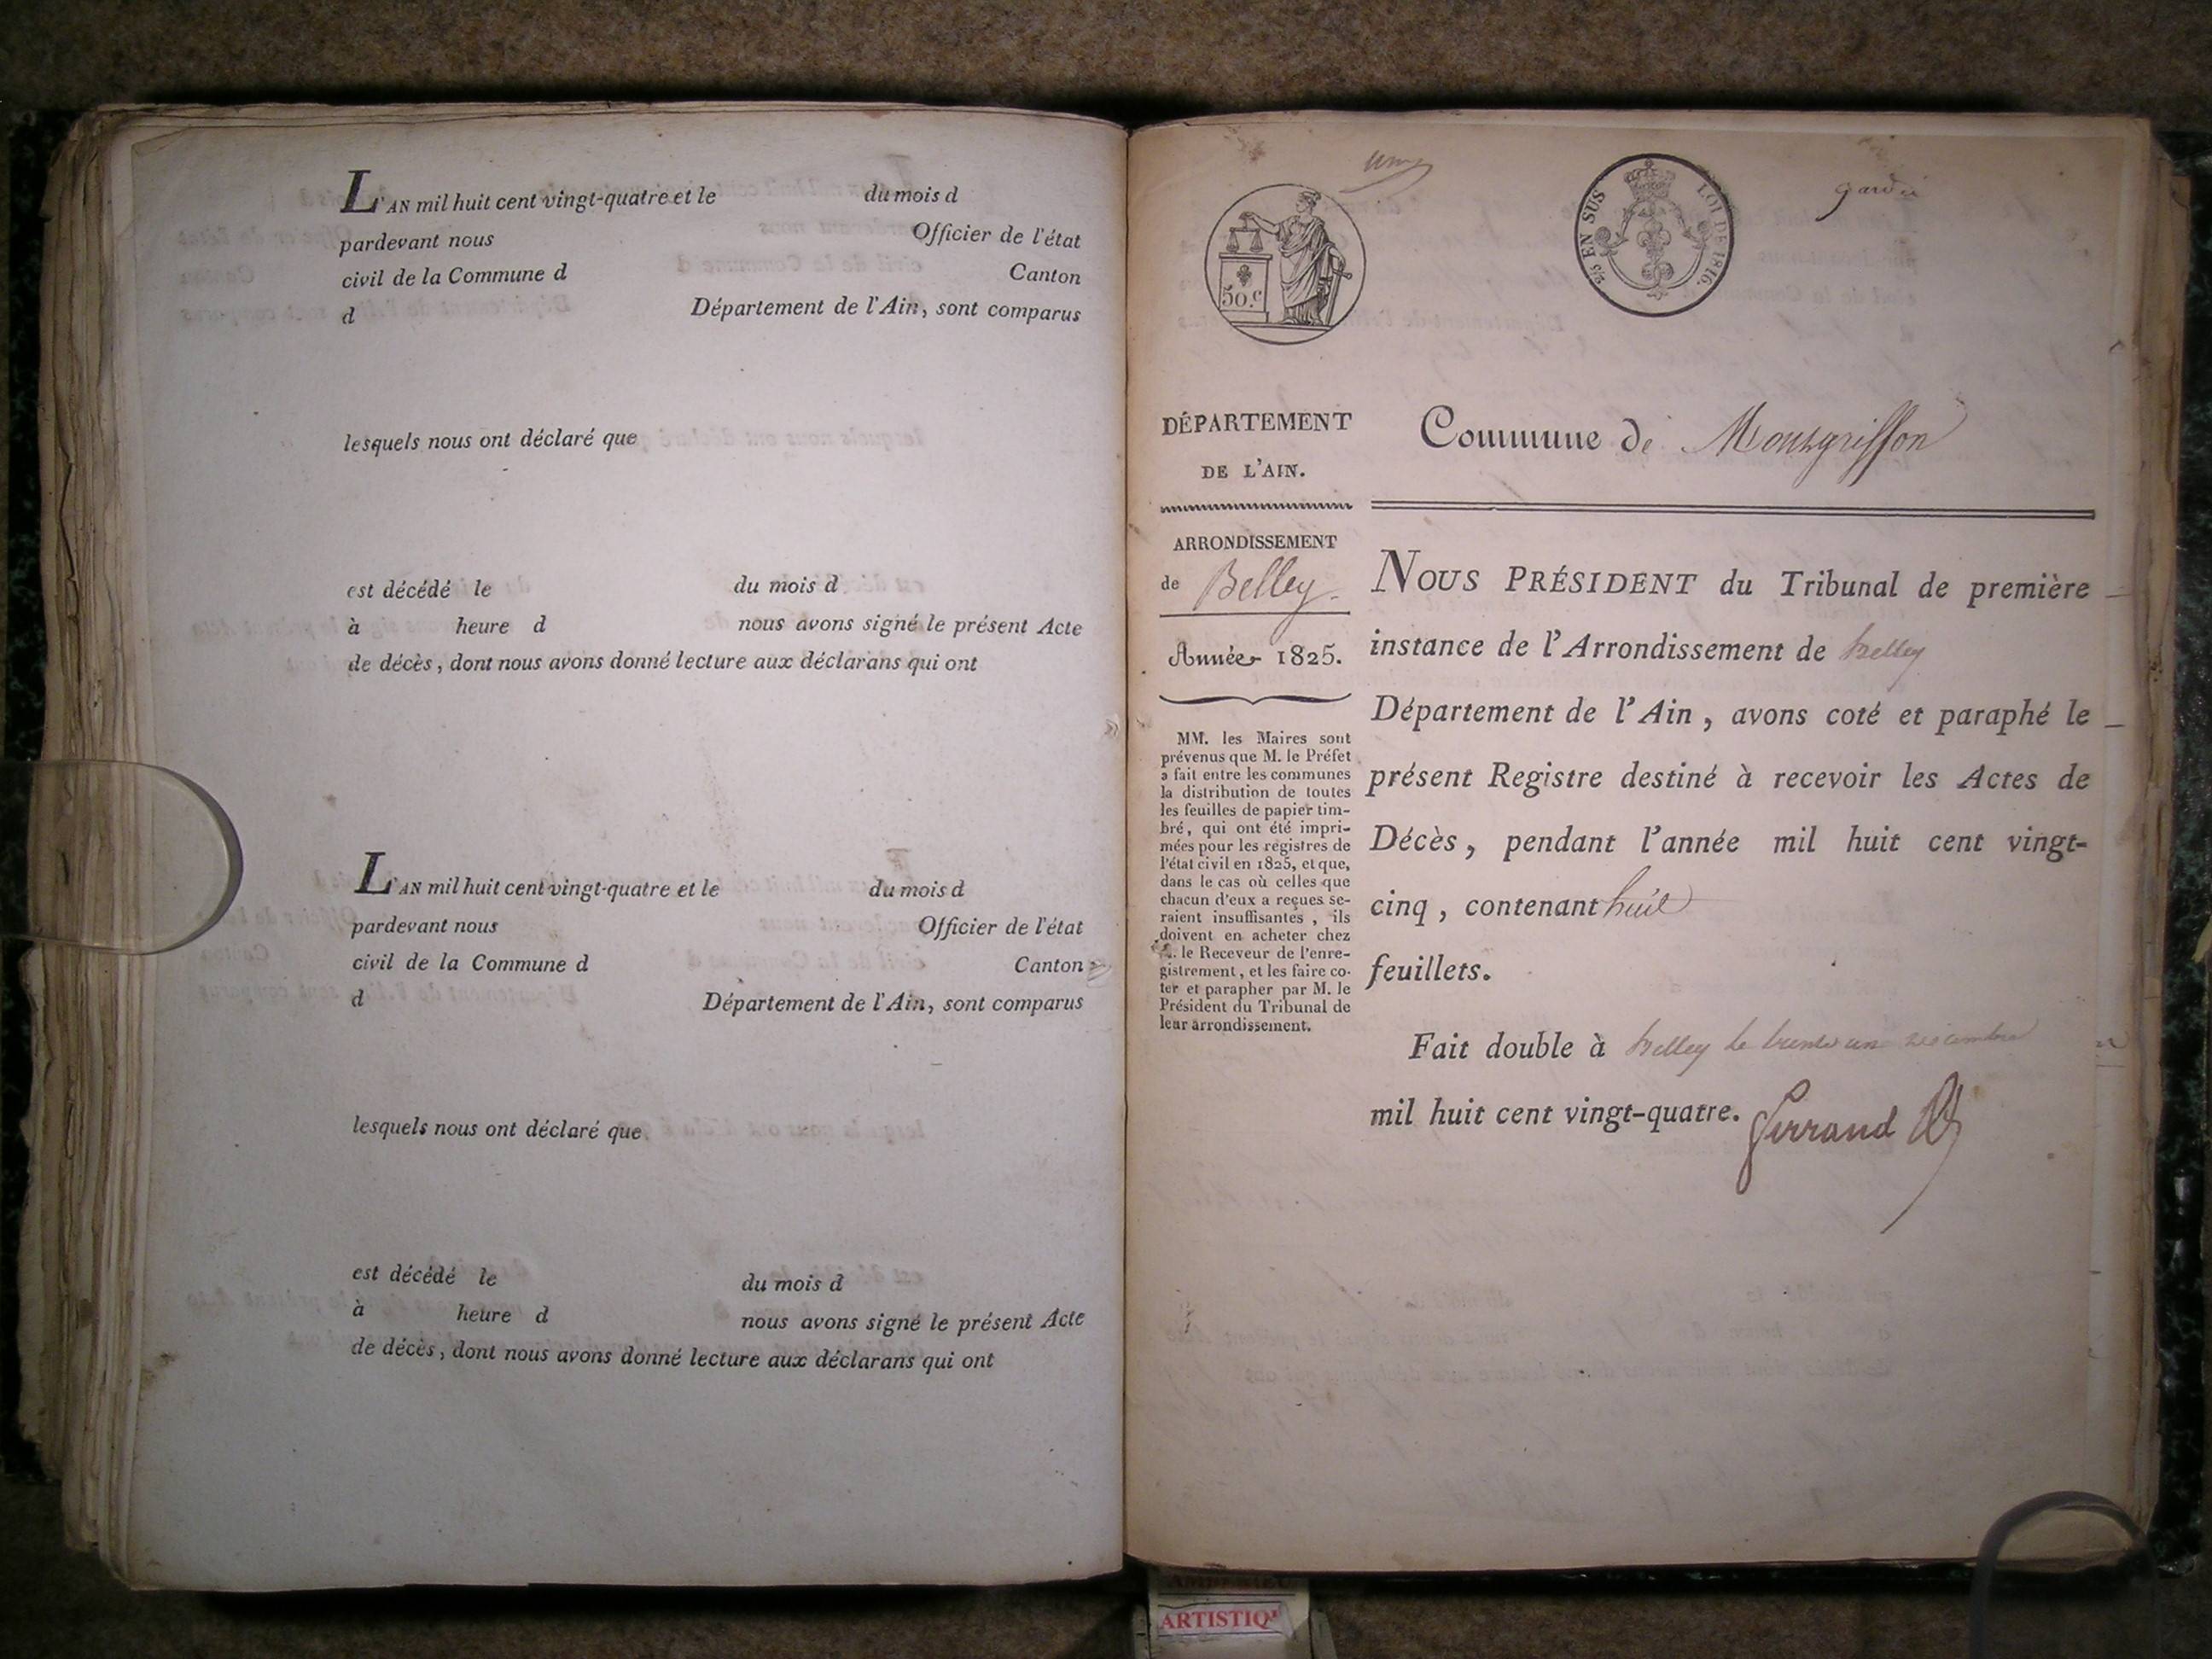 L'AN mil huit cent vingt-quatre et le du mois d
pardevant nous Officier de l'état
civil de la Commune d Canton
d Département de l'Ain, sont comparus
lesquels nous ont déclaré que
est décédé le du mois d
à heure d nous avons signé le présent Acte
de décès, dont nous avons donné lecture aux déclarans qui ont
L'AN mil huit cent vingt-quatre et le du mois d
pardevant nous Officier de l'état
civil de la Commune d Canton
d Département de l'Ain, sont comparus
lesquels nous ont déclaré que
est décédé le du mois d
à heure d nous avons signé le présent Acte
de décès, dont nous avons donné lecture aux déclarans qui ont
50.c
25 EN SUS LOI DE 1816.
DÉPARTEMENT
DE L'AIN.
ARRONDISSEMENT
de Belley.
Année 1825.
MM. les Maires sont
prévenus que M. le Préfet
a fait entre les communes
la distribution de toutes
les feuilles de papier tim-
bré, qui ont été impri-
mées pour les registres de
l'état civil en 1825, et que,
dans le cas où celles que
chacun d'eux a reçues se-
raient insuffisantes, ils
doivent en acheter chez
M. le Receveur de l'enre-
gistrement, et les faire co-
ter et parapher par M. le
Président du Tribunal de
leur arrondissement.
Commune de Montgriffon
NOUS PRÉSIDENT du Tribunal de première
instance de l'Arrondissement de Belley
Département de l'Ain, avons coté et paraphé le
présent Registre destiné à recevoir les Actes de
Décès, pendant l'année mil huit cent vingt-
cinq, contenant huit
feuillets.
Fait double à Belley le trente un décembre
mil huit cent vingt-quatre.
ARTISTIQ